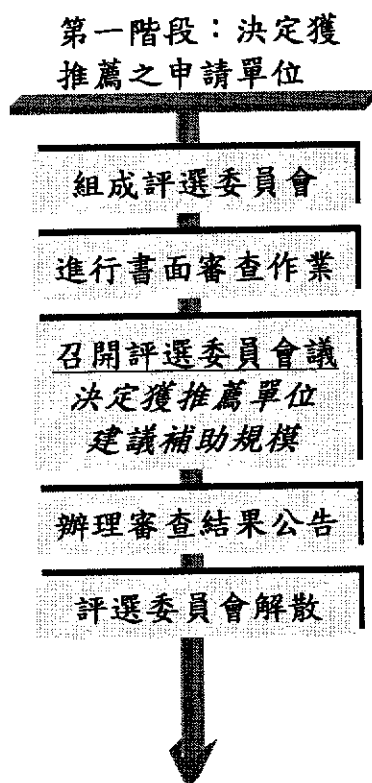 第一階段：決定獲
推薦之申請單位
組成評選委員會
進行書面審查作業
召開評選委員會議
決定獲推薦單位
建議補助規模
辦理審查結果公告
評選委員會解散